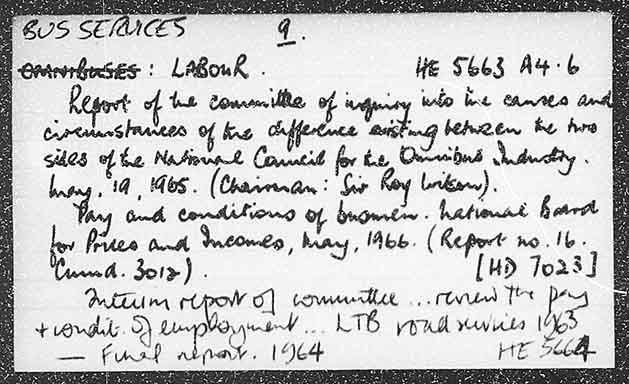 BUS SERVICES 9.
OMNIBUSES : LABOUR. HE 5663 A4.6
Report of the committee of inquiry into the causes and
circumstances of the difference existing between the two
sides of the National Council for the Omnibus Industry.
May, 19, 1965. (Chairman: Sir Roy Wilson).
Pay and conditions of busmen. National Board
for Prices and Incomes, May, 1966. (Report no. 16.
Cmnd. 3012). [HD 7023]
Interim report of committee ... review the pay
+ condit. of employment ... LTB road services 1963
— Final report. 1964 HE 5664